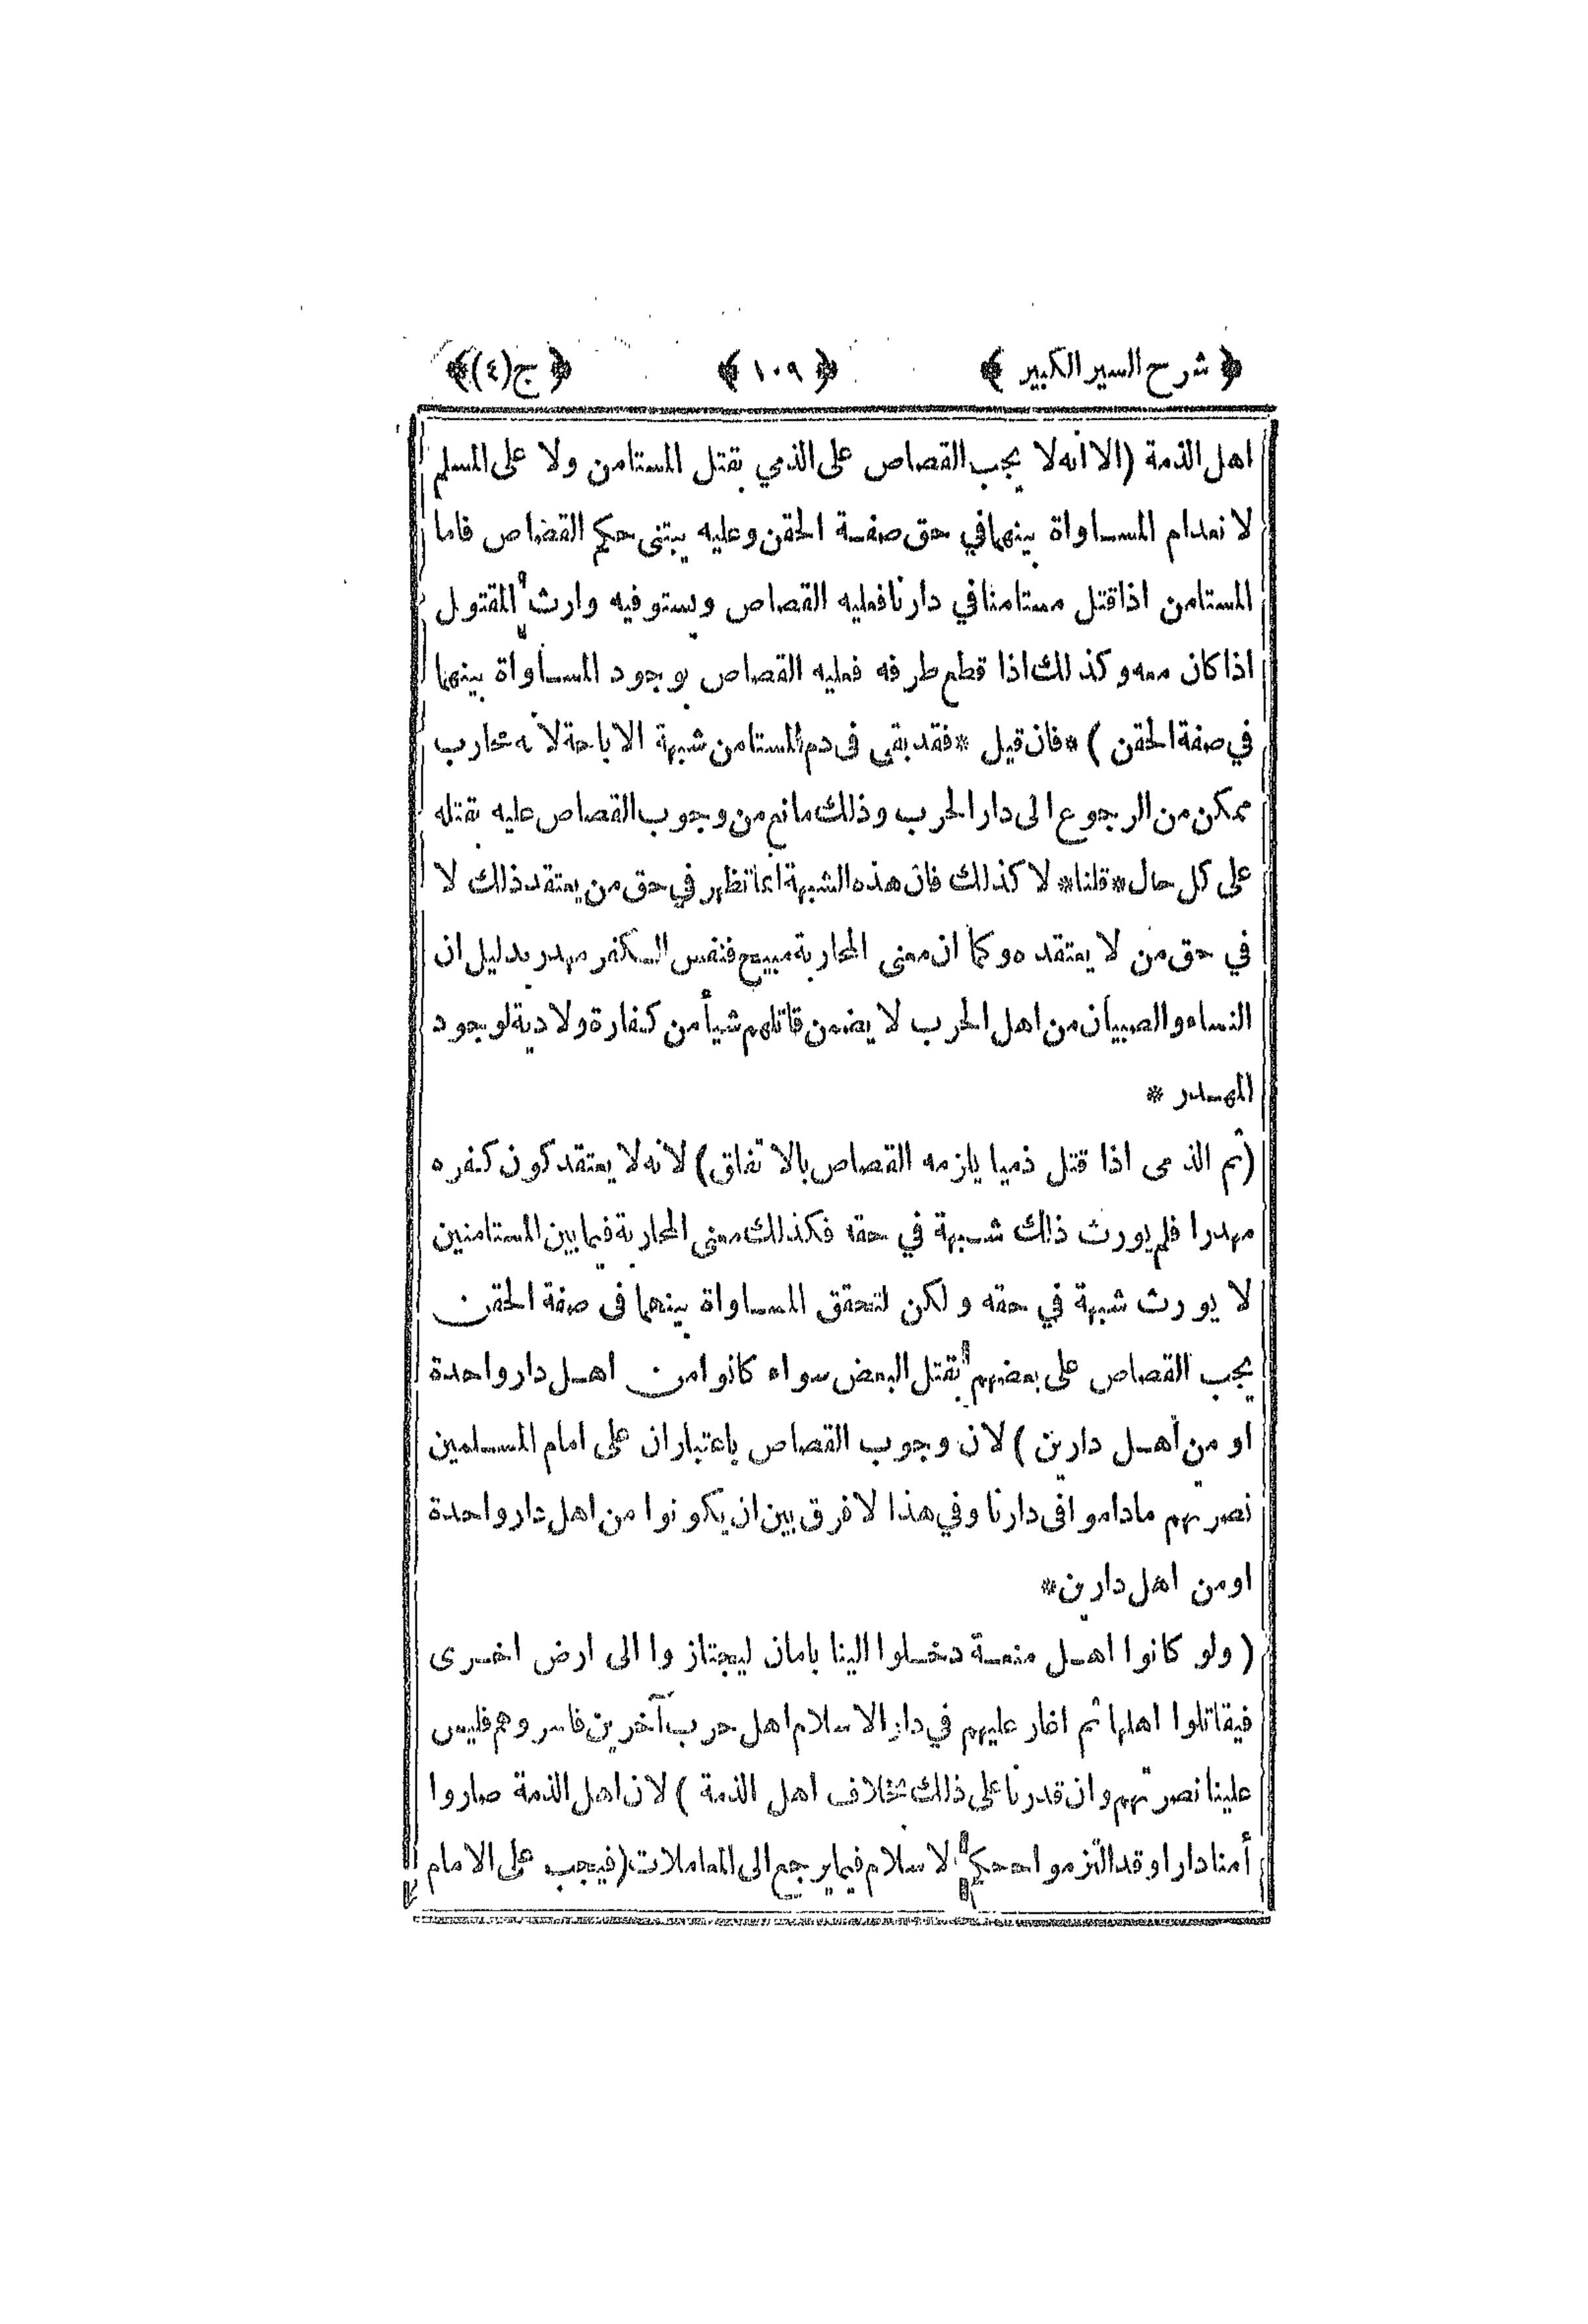 ﴿ شرح السير الكبير ﴾ ﴿ ١٠٩ ﴾ ﴿ ج(٤) ﴾
اهل الذمة (الا انه لا يجب القصاص على الذمي بقتل المستامن ولا على المسلم
لانعدام المساواة بينهما في حق صفة الحقن وعليه يبتنى حكم القصاص فاما
المستامن اذا قتل مستامنا في دارنا فعليه القصاص ويستوفيه وارث المقتول
اذا كان معه وكذلك اذا قطع طرفه فعليه القصاص بوجود المساواة بينهما
في صفة الحقن ) *فان قيل *فقد بقى فى دم المستامن شبهة الاباحة لانه محارب
ممكن من الرجوع الى دار الحرب وذلك مانع من وجوب القصاص عليه بقتله
على كل حال *قلنا* لا كذلك فان هذه الشبهة انما تظهر في حق من يعتقد ذلك لا
في حق من لا يعتقده وكما ان معنى المحاربة مبيح فنفس الكفر مهدر بدليل ان
النساء والصبيان من اهل الحرب لا يضمن قاتلهم شيأ من كفارة ولا دية لوجود
المهدر *
(ثم الذمى اذا قتل ذميا يلزمه القصاص بالاتفاق) لانه لا يعتقد كون كفره
مهدرا فلم يورث ذلك شبهة في حقه فكذلك معنى المحاربة فيما بين المستامنين
لا يورث شبهة في حقه ولكن لتحقق المساواة بينهما فى صفة الحقن
يجب القصاص على بعضهم بقتل البعض سواء كانوا من اهل دار واحدة
او من أهل دارين ) لان وجوب القصاص باعتبار ان على امام المسلمين
نصرتهم ماداموا فى دارنا وفي هذا لا فرق بين ان يكونوا من اهل دار واحدة
او من اهل دارين*
( ولو كانوا اهل منعة دخلوا الينا بامان ليجتازوا الى ارض اخرى
فيقاتلوا اهلها ثم اغار عليهم في دار الاسلام اهل حرب آخرين فاسروهم فليس
علينا نصرتهم وان قدرنا على ذلك بخلاف اهل الذمة ) لان اهل الذمة صاروا
أمنا دارا وقد التزموا حكم الاسلام فيما يرجع الى المعاملات (فيجب على الامام